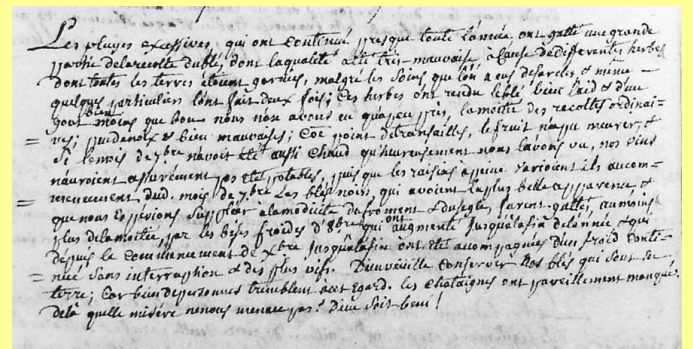 Les pluyes excessives, qui ont continué presque toute l'année, ont gatté une grande
partie de la recolte du bled, dont la qualité a été très-mauvaise, à cause de differentes herbes
dont toutes les terres etoient garnies, malgré les soins que l'on a eus de sarcler & même
quelques particuliers l'ont fait deux fois; ces herbes ont rendu le blé bien laid & d'un
gout bien moins que bon nous n'en avons eu qu'a peu près, la moitié des recoltes ordinai-
res; peu de noix & bien mauvaises; point de transailles, le fruit n'a pu meurer, &
si le mois de 7bre n'avoit été aussi chaud qu'heureusement nous l'avons vu, nos vins
n'auroient assurement pas été potables, puis que les raisins a peine varioient ils au com-
mencement dud. mois de 7.bre Les blés noirs, qui avoient la plus belle apparence &
que nous esperions suppléer à la modicité du froment & du segle, furent gattés, au moins
plus de la moitié, par les bises froides d'8bre qui ont augmenté jusqu'a la fin de l'année & qui
depuis le commencement de Xbre jusqu'a la fin ont été acompagnées d'un froid conti-
nué sans interruption & des plus vifs. Dieu veuille conserver nos blés qui sont en
terre; car bien de personnes tremblent a cet egard. les chataignes ont pareillement manqué.
de là quelle misére ne nous menace pas? Dieu soit beni!